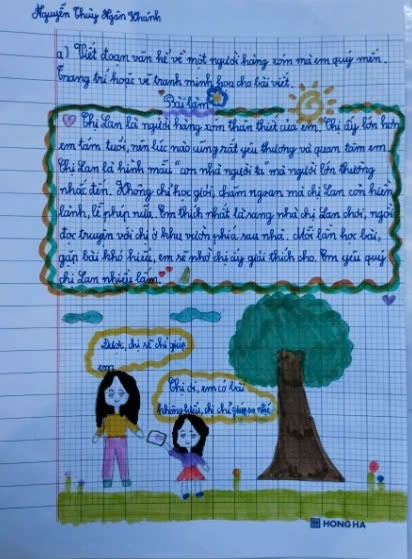 Nguyễn Thùy Ngân Khánh
a) Viết đoạn văn kể về một người hàng xóm mà em quý mến.
Trang trí hoặc vẽ tranh minh họa cho bài viết.
Bài làm
Chị Lan là người hàng xóm thân thiết của em. Chị ấy lớn hơn
em năm tuổi, nên lúc nào cũng rất yêu thương và quan tâm em.
Chị Lan là hình mẫu "con nhà người ta" mà người lớn thường
nhắc đến. Không chỉ học giỏi, chăm ngoan mà chị Lan còn hiền
lành, lễ phép nữa. Em thích nhất là sang nhà chị Lan chơi, ngồi
đọc truyện với chị ở khu vườn phía sau nhà. Mỗi lần học bài,
gặp bài khó hiểu, em sẽ nhờ chị ấy giải thích cho. Em yêu quý
chị Lan nhiều lắm.
Được, chị sẽ chỉ giúp
em
Chị ơi, em có bài
không hiểu, chị chỉ giúp em nhé
HONG HA